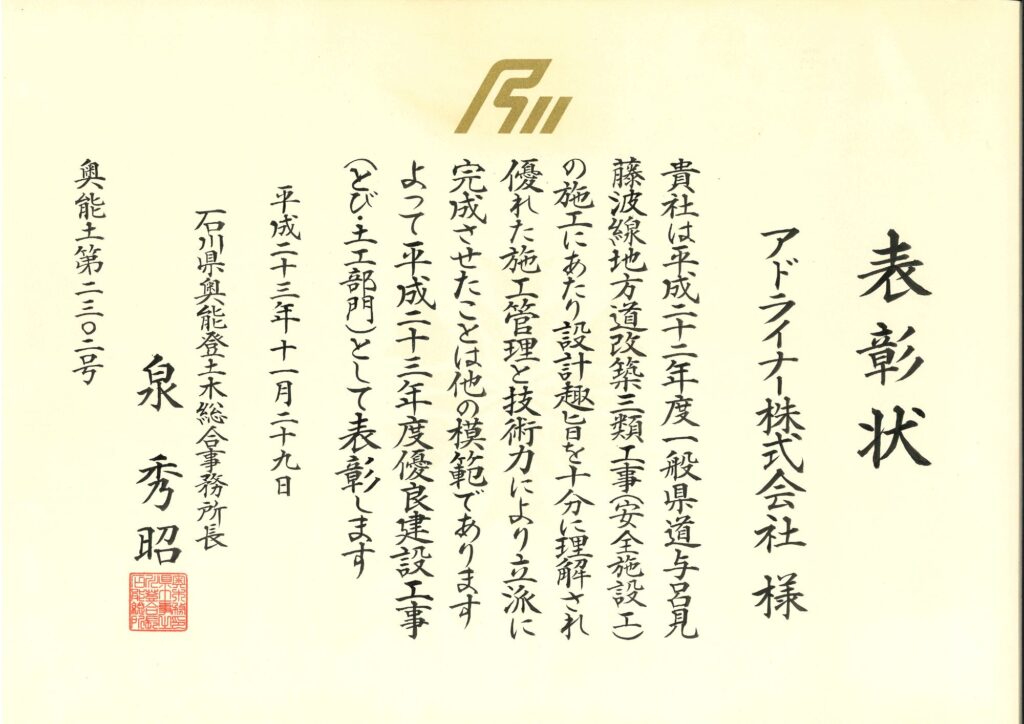 表彰状
アドライナー株式会社 様
貴社は平成二十二年度一般県道与呂見
藤波線地方道改築三類工事(安全施設工)
の施工にあたり設計趣旨を十分に理解され
優れた施工管理と技術力により立派に
完成させたことは他の模範であります
よって平成二十三年度優良建設工事
(とび・土工部門)として表彰します
平成二十三年十一月二十九日
石川県奥能登土木総合事務所長
泉 秀昭
奥能土第二三〇二号